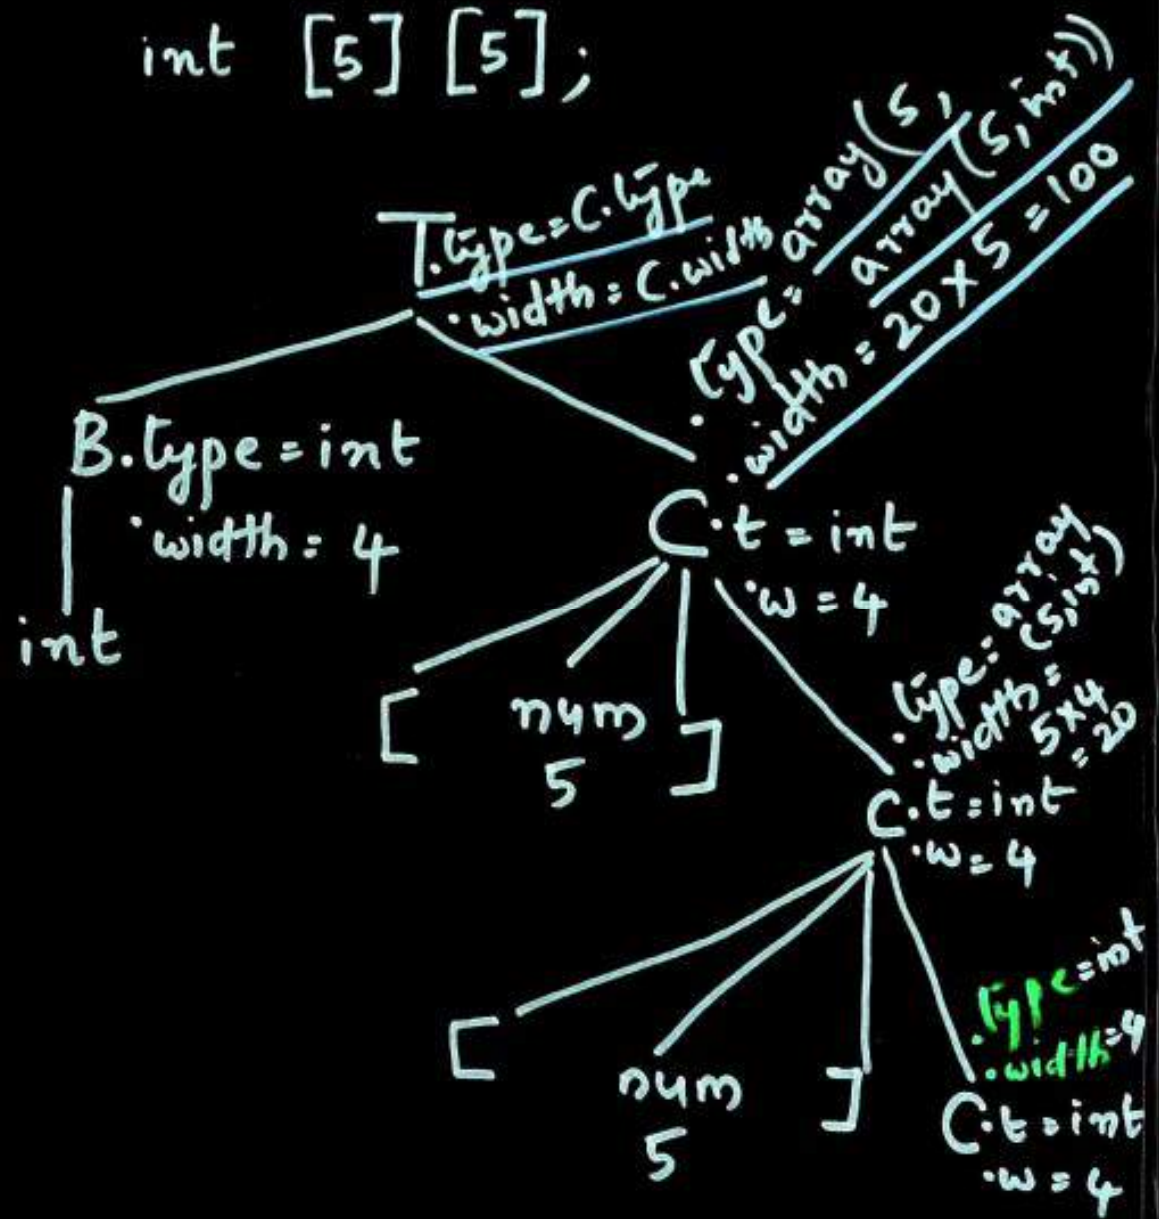 int [5] [5];
T.type=C.type
.width = C.width
.type = array(5,
array(5,int))
.width = 20 x 5 = 100
B.type = int
.width = 4
int
C.t = int
.w = 4
[ num ]
5
.type = array
(5,int)
.width =
5x4
= 20
C.t = int
.w = 4
[ num ]
5
.type=int
.width=4
C.t = int
.w = 4